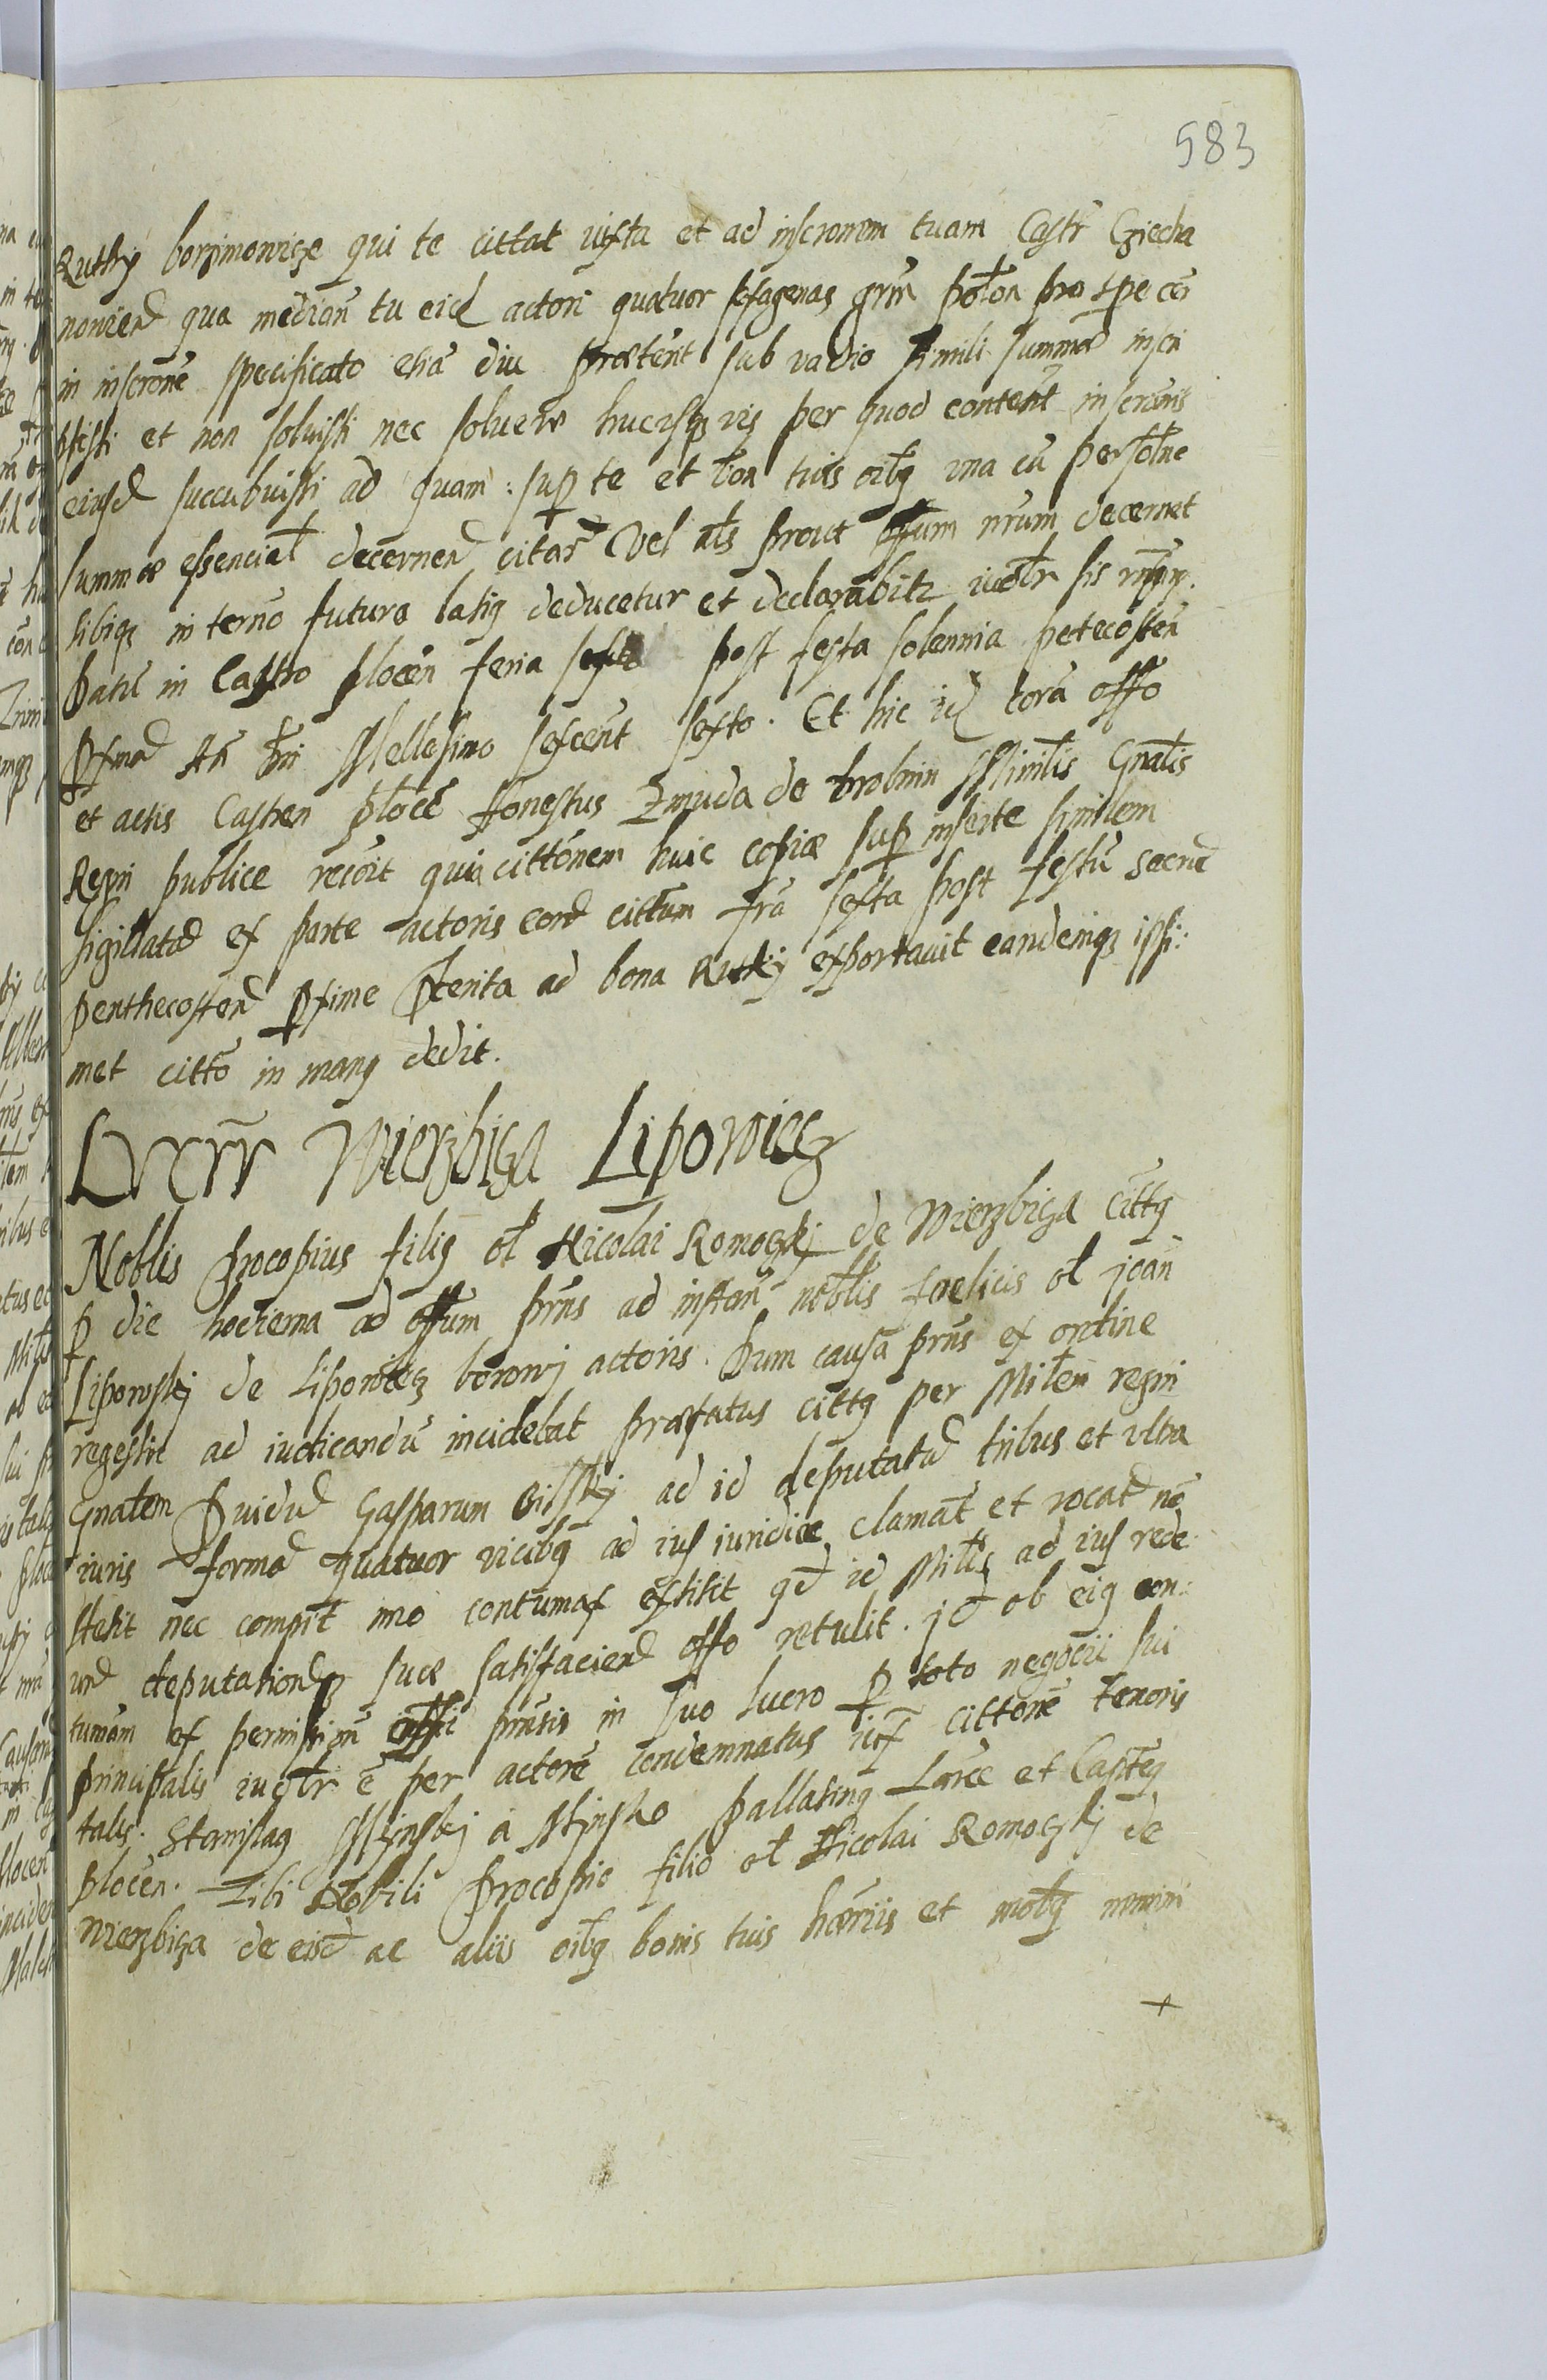 583
Rutky borzimowicze qui te cittat iuxta et ad inscronem tuam Castr Cziecha
nowien qua median tu eid actori quatuor sexagenas grm polon pro spe cer
in inscrone specificato etia diu praeterit sub vadio simili summae inscri
psisti et non solvisti nec solvere hucusq vis per quod content inscronis
eiusd succubuisti ad quam: sup te et bon tuis oibq una cu persolne
summae essencial decernend citar Vel als prout offum nrum decernet
tibiq in termo futuro latiq deducetur et declarabitz iudlr sis
Datu in Castro plocen feria sexta post festa solennia petecosten
pxma An Dni Mellesimo sexcent sexto. Et hic id cora offo
et actis Castren ploce Honestus Zmuda de brolnin Ministlis Gnalis
Regni publice recoit quia cittonem huic copiae sup inserte similem
sigillatad ex parte actoris cord cittum fra sexta post festu sacru
penthecosten pxime pterita ad bona Rutky exportavit eandemq ipsi:
met citto in manq dedit.
Lucrr Wierzbicza Lipowiecz
Noblis Procopius filiq ol Nicolai Romoczkj de Wierzbicza cittq
p die hodierna ad offum prns ad instan noblis foelicis ol joan
Liposkj de Lipowiecz borowj actoris. Dum causa prns ex ordine
regestri ad iudicandu incidebat praefatus cittq per Milem regni
Gnalem Pvidu Gasparum ad id deputatu tribus et ultra
iuris forma quatuor vicibq ad ius iuridice clamat et vocat no
stetit nec compit imo contumax extitit qd id Mils ad ius rede
und deputationiq suae satisfaciend offo retulit. jd ob eiq con:
tumam ex permission offi prntis in suo lucro p toto negocii sui
principalis iudlr e per actore condemnatus iux cittone tenoris
talis. Stanislaq Minskj a Minsko pallatinq Lance et Capteq
plocen. Tibi Nobili Procopio filio ol Nicolai Romoczkj de
Wierzbicza de eisd ac aliis oibq bonis tuis haeriis et moblq